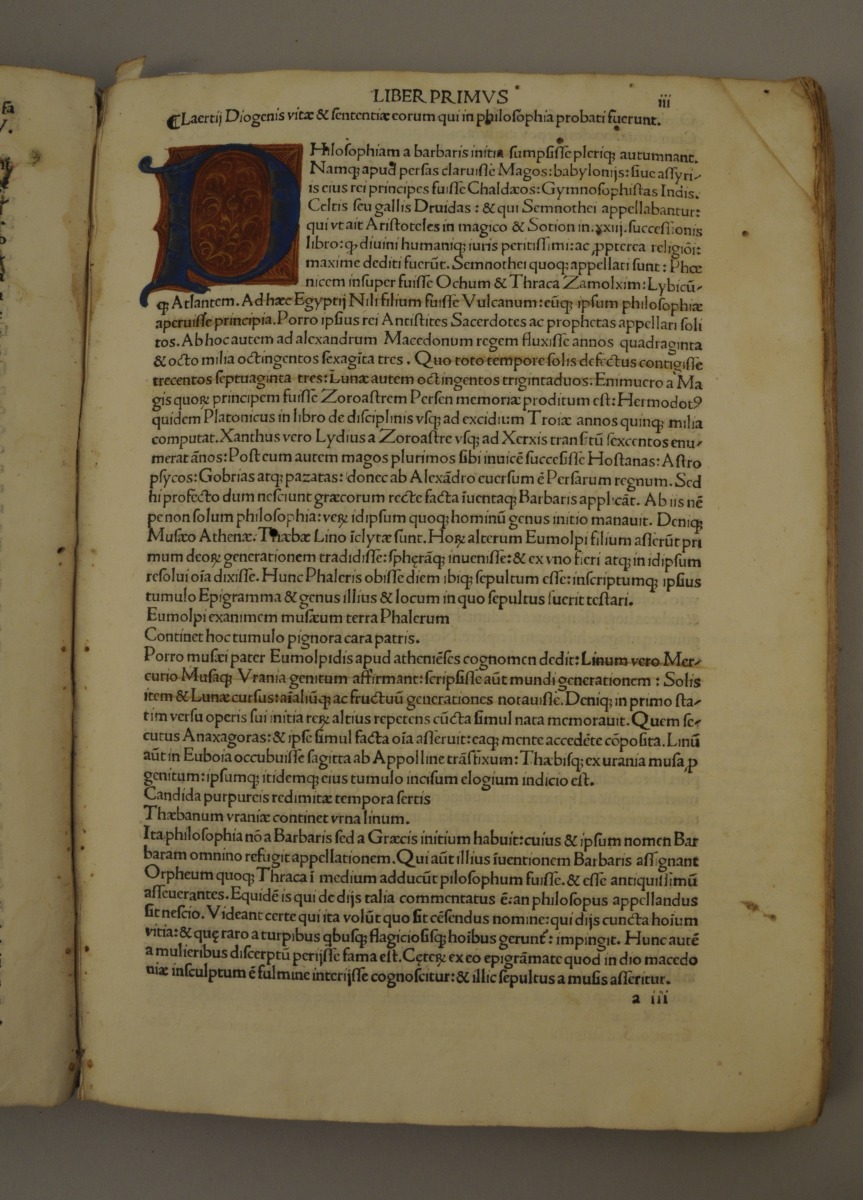 ſa
V.
LIBER PRIMVS
iii
¶Laertij Diogenis vitæ & ſententiæ eorum qui in philoſophia probati fuerunt.
PHiloſophiam a barbaris initia ſumpſiſſe pleriqꝫ autumnant.
Namqꝫ apud perſas claruiſſe Magos: babylonijs: ſiue aſſyri-
is eius rei principes fuiſſe Chaldæos: Gymnoſophiſtas Indis.
Celtis ſeu gallis Druidas: & qui Semnothei appellabantur:
qui vt ait Ariſtoteles in magico & Sotion in.xxiij. ſucceſſionis
libro: ꝙ diuini humaniqꝫ iuris peritiſſimi: ac ꝓpterea religiõi:
maxime dediti fuerũt. Semnothei quoqꝫ appellati ſunt: Phœ
nicem inſuper fuiſſe Ochum & Thraca Zamolxim: Lybicũ-
qꝫ Atlantem. Ad hæc Egyptij Nili filium fuiſſe Vulcanum: eũqꝫ ipſum philoſophiæ
aperuiſſe principia. Porro ipſius rei Antiſtites Sacerdotes ac prophetas appellari ſoli
tos. Ab hoc autem ad alexandrum Macedonum regem fluxiſſe annos quadraginta
& octo milia octingentos ſexagĩta tres. Quo toto tempore ſolis defectus contigiſſe
trecentos ſeptuaginta tres: Lunæ autem octingentos trigintaduos: Enimuero a Ma
gis quoꝝ principem fuiſſe Zoroaſtrem Perſen memoriæ proditum eſt: Hermodotꝯ
quidem Platonicus in libro de diſciplinis vſqꝫ ad excidium Troiæ annos quinqꝫ milia
computat. Xanthus vero Lydius a Zoroaſtre vſqꝫ ad Xerxis tranſitũ ſexcentos enu-
merat ãnos: Poſt eum autem magos plurimos ſibi inuicẽ ſucceſiſſe Hoſtanas: Aſtro
pſycos: Gobrias atqꝫ pazatas: donec ab Alexãdro euerſum ẽ Perſarum regnum. Sed
hi profecto dum neſciunt græcorum recte facta ĩuentaqꝫ Barbaris applicãt. Ab iis nẽ
pe non ſolum philoſophia: veꝝ idipſum quoqꝫ hominũ genus initio manauit. Deniqꝫ
Muſæo Athenæ. Thæbæ Lino ĩclytæ ſunt. Hoꝝ alterum Eumolpi filium aſſerũt pri
mum deoꝝ generationem tradidiſſe: ſphęrãqꝫ inueniſſe: & ex vno fieri atqꝫ in idipſum
reſolui oĩa dixiſſe. Hunc Phaleris obiſſe diem ibiqꝫ ſepultum eſſe: inſcriptumqꝫ ipſius
tumulo Epigramma & genus illius & locum in quo ſepultus fuerit teſtari.
Eumolpi exanimem muſæum terra Phalerum
Continet hoc tumulo pignora cara patris.
Porro muſæi pater Eumolpidis apud atheniẽſes cognomen dedit: Linum vero Mer-
curio Muſaqꝫ Vrania genitum affirmant: ſcripſiſſe aũt mundi generationem: Solis
item & Lunæ curſus: aĩaliũqꝫ ac fructuũ generationes notauiſſe. Deniqꝫ in primo ſta-
tim verſu operis ſui initia reꝝ altius repetens cũcta ſimul nata memorauit. Quem ſe-
cutus Anaxagoras: & ipſe ſimul facta oĩa aſſeruit: eaqꝫ mente accedẽte cõpoſita. Linũ
aũt in Euboia occubuiſſe ſagitta ab Appolline trãſfixum: Thæbiſqꝫ ex urania muſa ꝓ
genitum: ipſumqꝫ itidemqꝫ eius tumulo inciſum elogium indicio eſt.
Candida purpureis redimitæ tempora ſertis
Thæbanum vraniæ continet vrna linum.
Ita philoſophia nõ a Barbaris ſed a Græcis initium habuit: cuius & ipſum nomen Bar
baram omnino refugit appellationem. Qui aũt illius ĩuentionem Barbaris aſſignant
Orpheum quoqꝫ Thraca ĩ medium adducũt piloſophum fuiſſe. & eſſe antiquiſſimũ
aſſeuerantes. Equidẽ is qui de dijs talia commentatus ẽ: an philoſopus appellandus
ſit neſcio. Videant certe qui ita volũt quo ſit cẽſendus nomine: qui dijs cuncta hoium
vitia: & quę raro a turpibus qbuſqꝫ flagicioſiſqꝫ hoĩbus gerunt᷑: impingit. Hunc autẽ
a mulieribus diſcerptũ perijſſe fama eſt. Cęteꝝ ex eo epigrãmate quod in dio macedo
niæ inſculptum ẽ fulmine interijſſe cognoſcitur: & illic ſepultus a muſis aſſeritur.
a iii